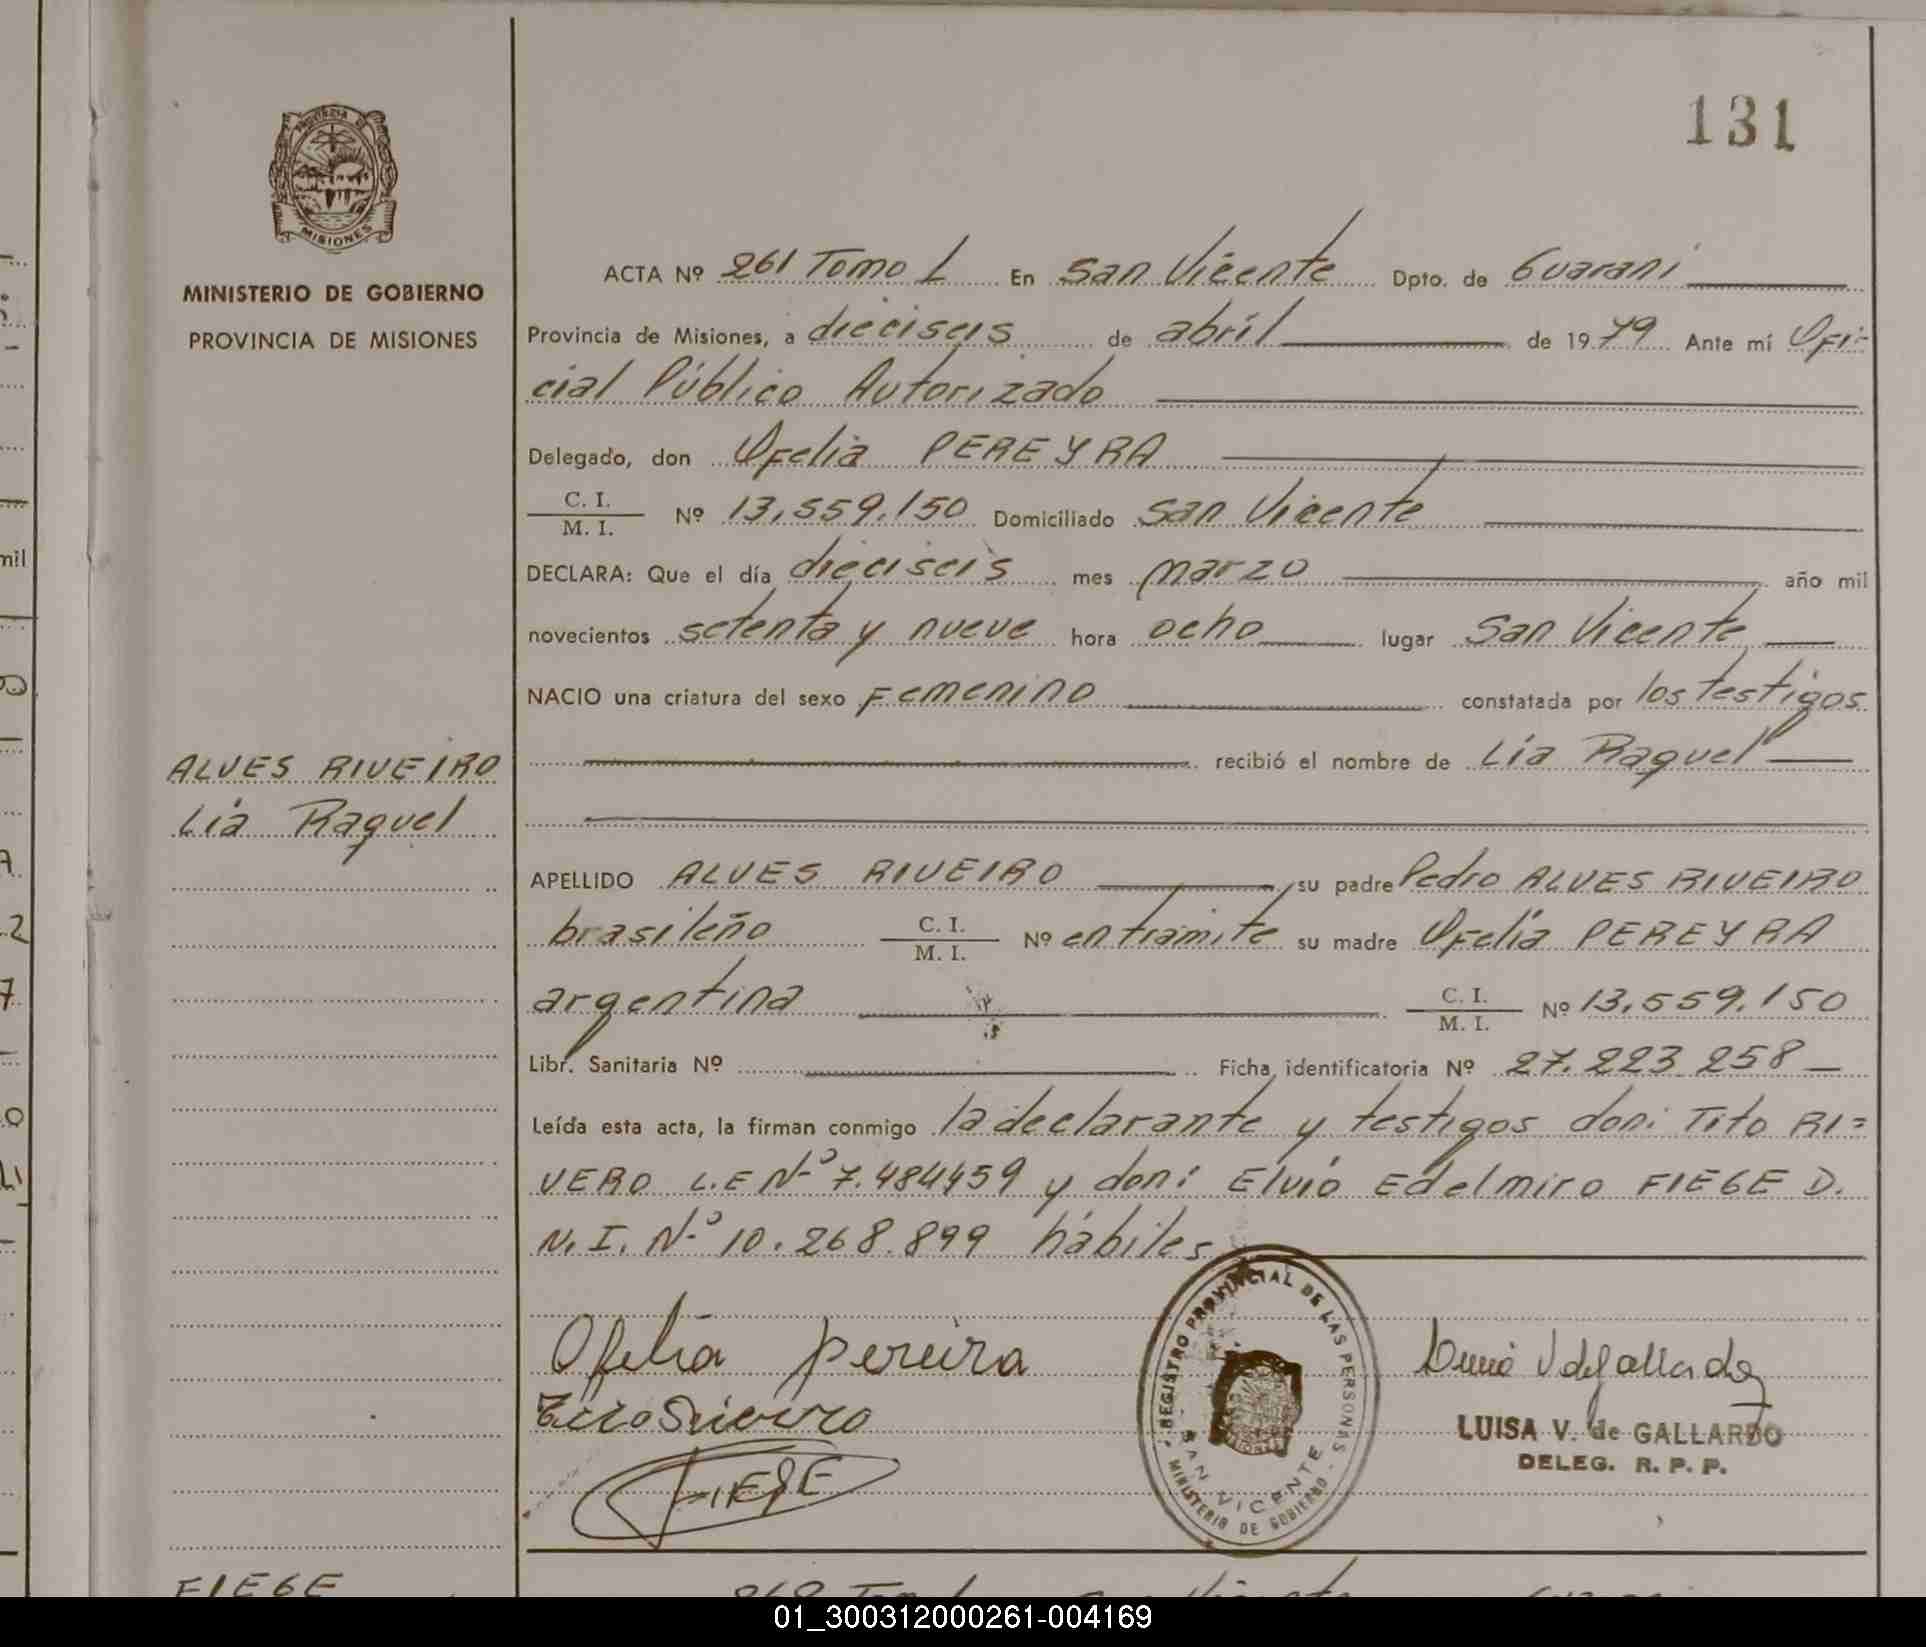 131
PROVINCIA DE
MISIONES
MINISTERIO DE GOBIERNO
PROVINCIA DE MISIONES
ALVES RIVEIRO
Lia Raquel
ACTA Nº 261 Tomo I En San Vicente Dpto. de Guarani
Provincia de Misiones, a dieciseis de abril de 1979 Ante mí Ofi-
cial Público Autorizado
Delegado, don Ofelia PEREYRA
C. I.
M. I. Nº 13.559.150 Domiciliado San Vicente
DECLARA: Que el día dieciseis mes marzo año mil
novecientos setenta y nueve hora ocho lugar San Vicente
NACIO una criatura del sexo Femenino constatada por los testigos
recibió el nombre de Lía Raquel
APELLIDO ALVES RIVEIRO su padre Pedro ALVES RIVEIRO
brasileño C. I. M. I. Nº en trámite su madre Ofelia PEREYRA
argentina C. I. M. I. Nº 13.559.150
Libr. Sanitaria Nº Ficha identificatoria Nº 27.223.258
Leída esta acta, la firman conmigo la declarante y testigos don: Tito RI=
VERO L.E Nº 7.484459 y don: Elvio Edelmiro FIEGE D.
N.I. Nº 10.268.899 hábiles
Ofelia pereira
FIEGE
REGISTRO PROVINCIAL DE LAS PERSONAS
SAN VICENTE
MINISTERIO DE GOBIERNO
LUISA V. de GALLARDO
DELEG. R. P. P.
FIEGE
01_300312000261-004169